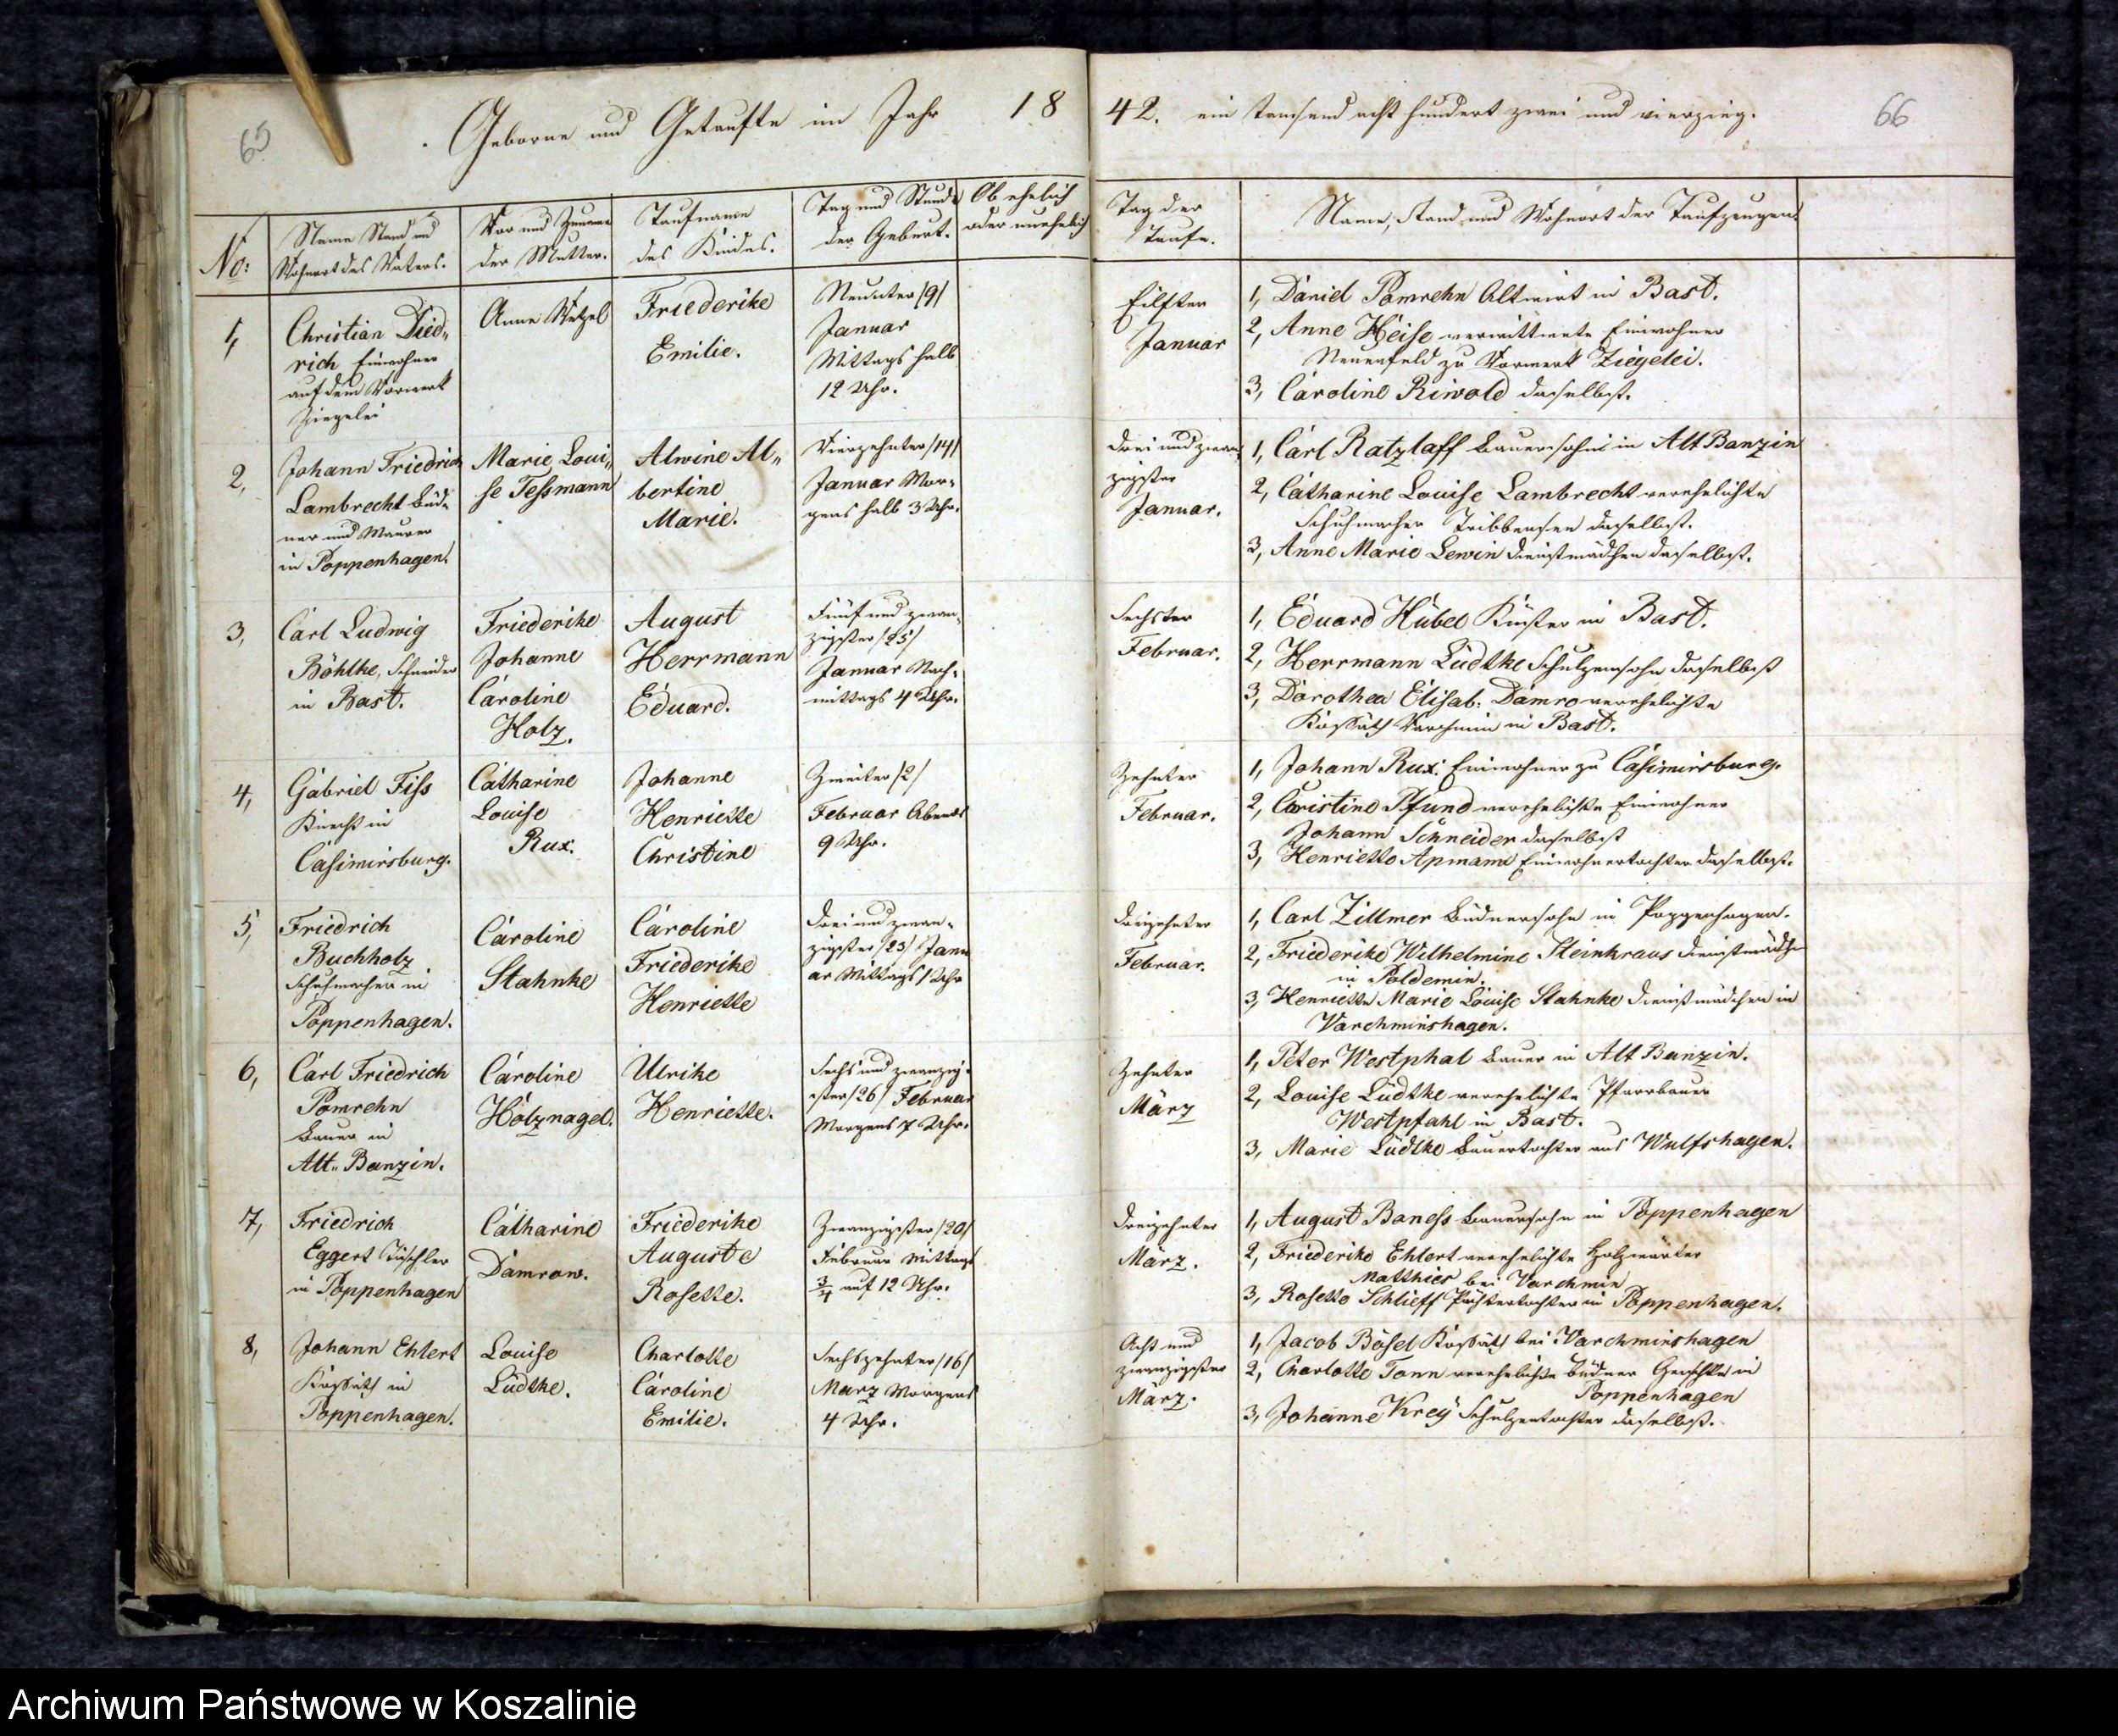 65
Geborne und Getaufte im Jahr 18
42. ein tausend acht hundert zwei und vierzig.
66
No:
Name Stand und
Wohnort des Vaters.
Vor und Zuname
der Mutter.
Taufname
des Kindes.
Tag und Stunde
der Geburt.
Ob ehelich
oder unehelich
Tag der
Taufe.
Name, Stand und Wohnort der Taufzeugen.
1,
Christian Died„
rich Einwohner
auf dem Vorwerk
Ziegelei
Anne Wetzel
Friederike
Emilie.
Neunter /9/
Januar
Mittags halb
12 Uhr.
Eilfter
Januar
1, Daniel Pomrehn Altwirt in Bast.
2, Anne Heise verwittwete Einwohner
Neuenfeld zu Vorwerk Ziegelei.
3, Caroline Riwold daselbst.
2,
Johann Friedrich
Lambrecht Büd„
ner und Maurer
in Poppenhagen.
Marie Loui„
se Tessmann
Alwine Al„
bertine
Marie.
Vierzehnter /14/
Januar Mor„
gens halb 3 Uhr.
Drei und zwan„
zigster
Januar.
1, Carl Ratzlaff Bauersohn in Alt Banzin
2, Catharine Louise Lambrecht verehelichte
Schuhmacher Tribbensen daselbst.
3, Anne Marie Lewin Dienstmädchen daselbst.
3,
Carl Ludwig
Böhlke, Schneider
in Bast.
Friederike
Johanne
Caroline
Holz.
August
Herrmann
Eduard.
Fünf und zwan„
zigster /25/
Januar Nach„
mittags 4 Uhr.
Sechster
Februar.
1, Eduard Hübel Küster in Bast.
2, Herrmann Lüdtke Schulzensohn daselbst
3, Dorothea Elisab: Damro verehelichte
Kossäth Varchmin in Bast.
4,
Gabriel Fiss
Knecht in
Casimirsburg.
Catharine
Louise
Rux.
Johanne
Henriette
Christine
Zweiter /2/
Februar Abends
9 Uhr.
Zehnter
Februar.
1, Johann Rux. Einwohner zu Casimirsburg.
2, Christine Pfund verehelichte Einwohner
Johann Schneider daselbst
3, Henriette Apmann Einwohnertochter daselbst.
5,
Friedrich
Buchholz
Schuhmacher in
Poppenhagen.
Caroline
Stahnke
Caroline
Friederike
Henriette
Drei und zwan„
zigster /23/ Janu
ar Mittags 1 Uhr
Dreizehnter
Februar.
1, Carl Zillmer Büdnersohn in Poppenhagen.
2, Friederike Wilhelmine Steinkraus Dienstmädchen
in Poldemin.
3, Henriette Marie Louise Stahnke Dienstmädchen in
Varchminshagen.
6,
Carl Friedrich
Pomrehn
Bauer in
Alt„ Banzin.
Caroline
Holznagel.
Ulrike
Henriette.
Sechs und zwanzig„
ster /26/ Februar
Morgens 7 Uhr.
Zehnter
März
1, Peter Westphal Bauer in Alt Banzin.
2, Louise Lüdtke verehelichte Pfarrbauer
Westpfahl in Bast.
3, Marie Lüdtke Bauertochter aus Wulfshagen.
7,
Friedrich
Eggert Tischler
in Poppenhagen
Catharine
Damrow.
Friederike
Auguste
Rosette.
Zwanzigster /20/
Februar Mittags
3/4 auf 12 Uhr.
Dreizehnter
März.
1, August Baness Bauersohn in Poppenhagen
2, Friederike Ehlert verehelichte Holzwärter
Matthies bei Varchmin
3, Rosette Schlieff Pächtertochter in Poppenhagen.
8,
Johann Ehlert
Kossäth in
Poppenhagen.
Louise
Lüdtke.
Charlotte
Caroline
Emilie.
Sechszehnter /16/
März Morgens
4 Uhr.
Acht und
zwanzigster
März.
1, Jacob Bösel Kossäth bei Varchminshagen
2, Charlotte Tonn verehelichte Büdner in
Poppenhagen
3, Johanne Krey Schulzentochter daselbst.
Archiwum Państwowe w Koszalinie